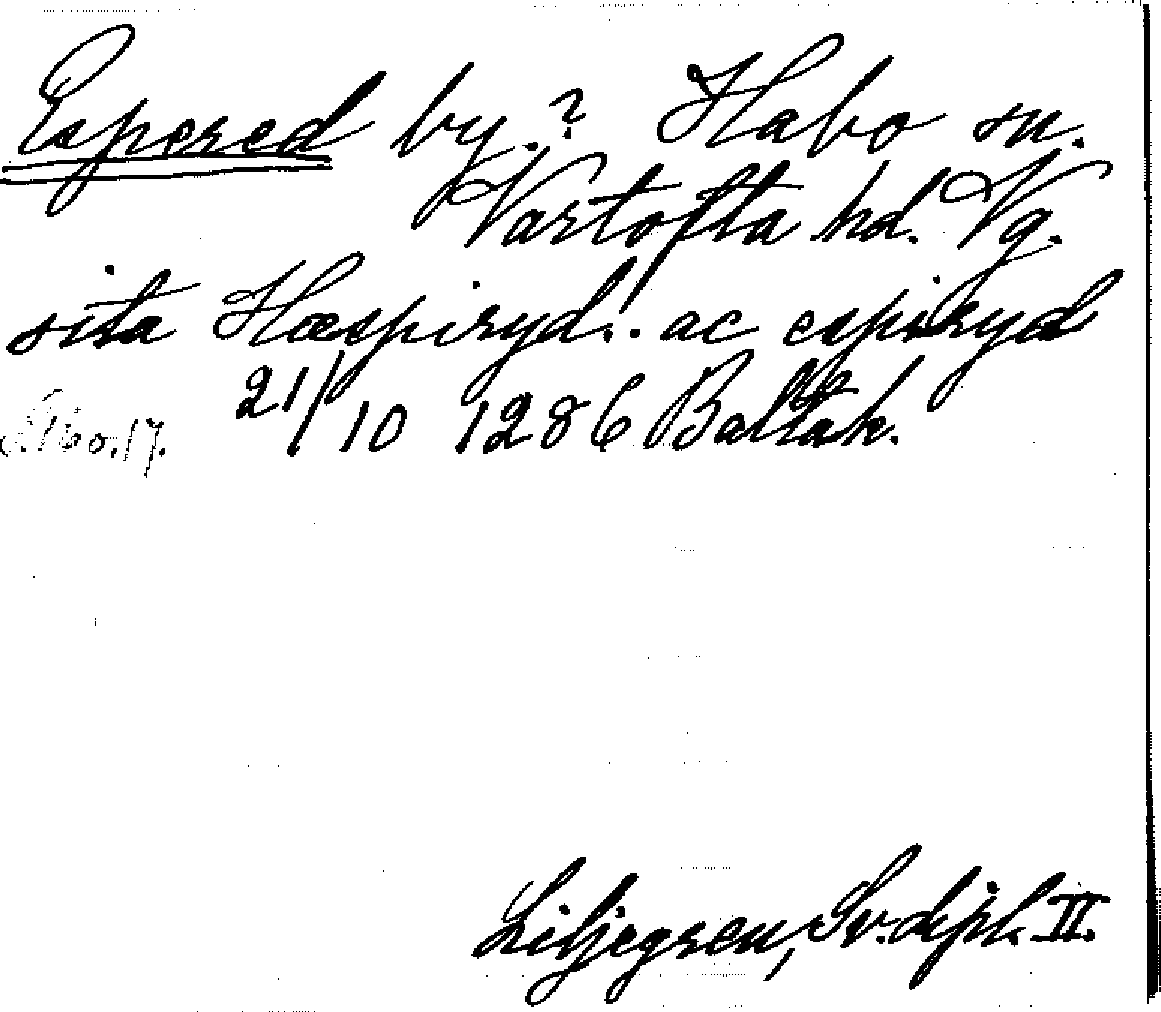 Espered by.? Habo sn.
Vartofta hd. Vg.
sita Hæspiryd!. ac espiryd
21/10 1286 Baltak.
Liljegren, Sv. dipl. II.